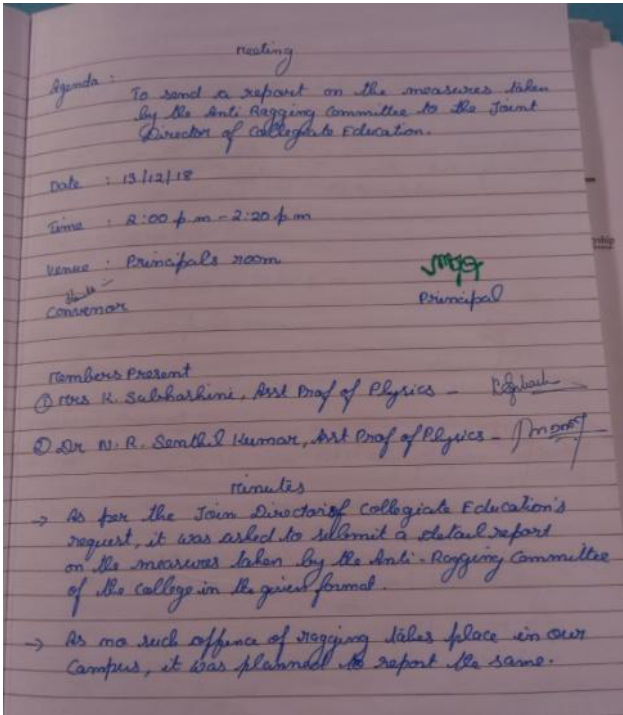 Meeting
Agenda :
To send a report on the measures taken
by the Anti Ragging Committee to the Joint
Director of Collegiate Education.
Date : 13/12/18
Time : 2:00 p.m - 2:20 p.m
Venue : Principals room
Convenor
Principal
Members Present
① Mrs K. Subhashini, Asst Prof of Physics -
② Dr N. R. Senthil Kumar, Asst Prof of Physics -
Minutes
→ As per the Join Director of Collegiate Education's
request, it was asked to submit a detail report
on the measures taken by the Anti-Ragging Committee
of the college in the given format.
→ As no such offence of ragging takes place in our
Campus, it was planned to report the same.